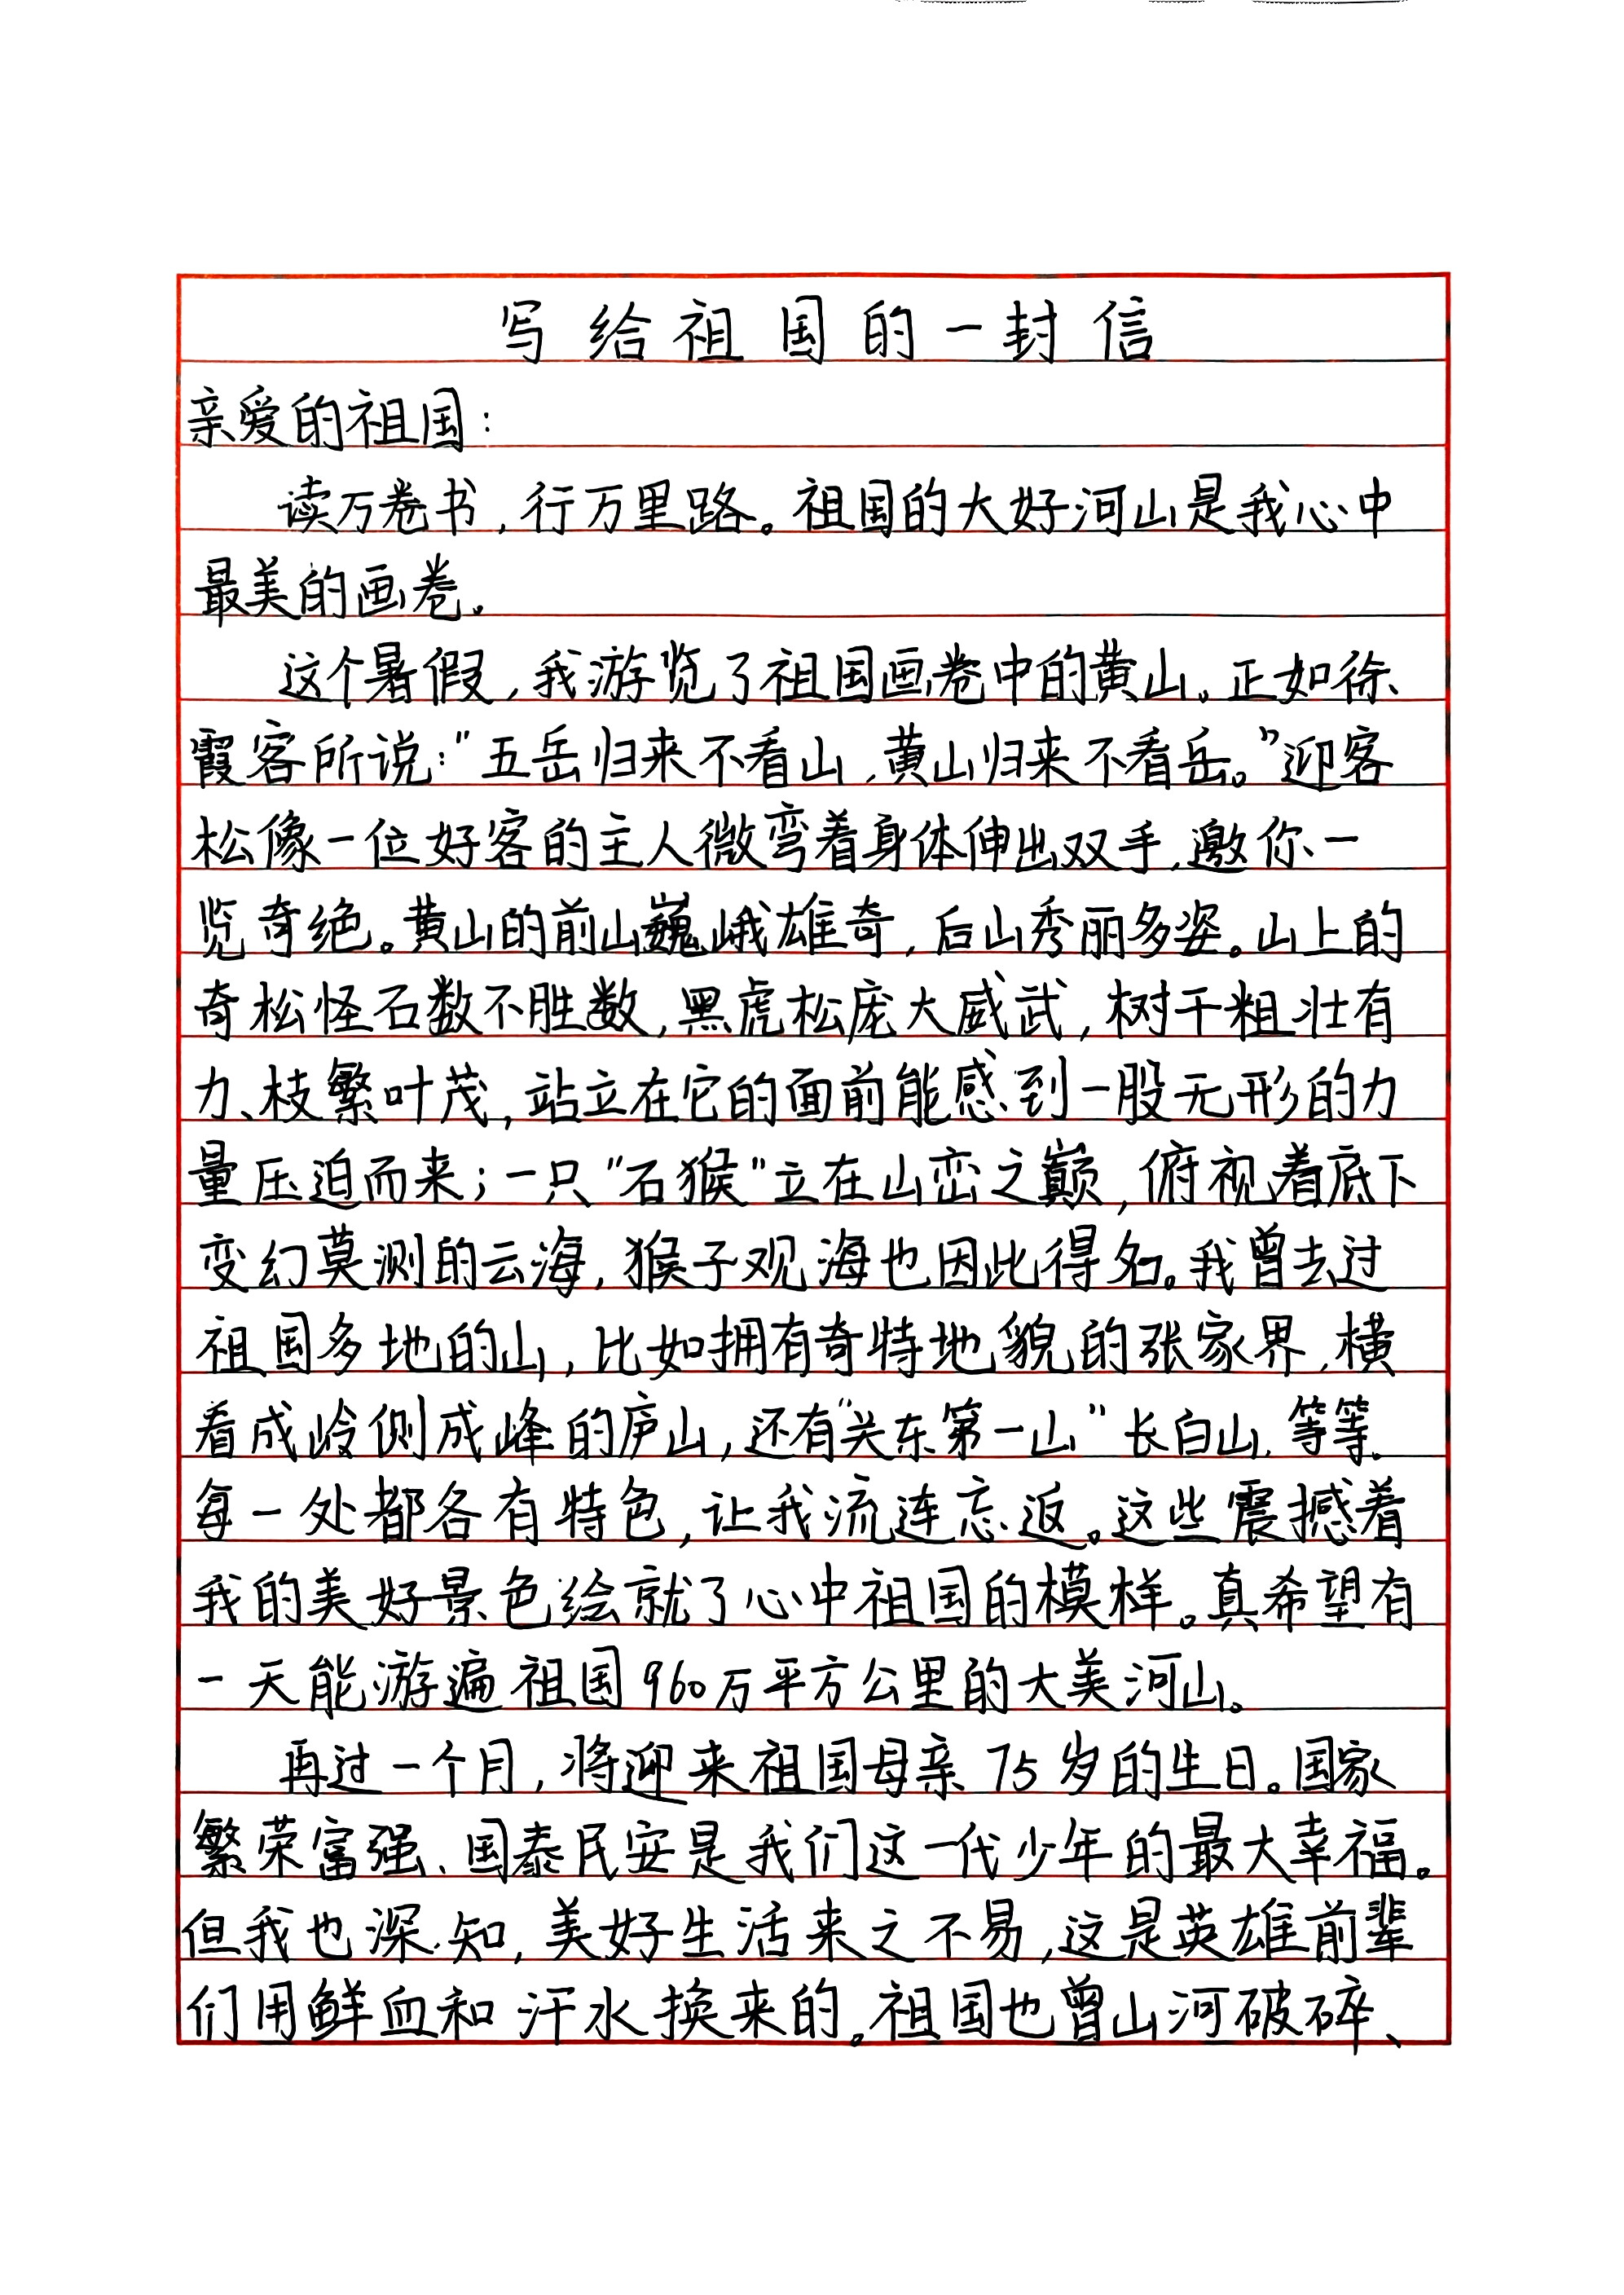 写给祖国的一封信
亲爱的祖国：
读万卷书，行万里路。祖国的大好河山是我心中
最美的画卷。
这个暑假，我游览了祖国画卷中的黄山。正如徐
霞客所说："五岳归来不看山，黄山归来不看岳。"迎客
松像一位好客的主人微弯着身体伸出双手，邀你一
览奇绝。黄山的前山巍峨雄奇，后山秀丽多姿。山上的
奇松怪石数不胜数，黑虎松庞大威武，树干粗壮有
力、枝繁叶茂，站立在它的面前能感到一股无形的力
量压迫而来；一只"石猴"立在山峦之巅，俯视着底下
变幻莫测的云海，猴子观海也因此得名。我曾去过
祖国多地的山，比如拥有奇特地貌的张家界，横
看成岭侧成峰的庐山，还有"关东第一山"长白山，等等。
每一处都各有特色，让我流连忘返。这些震撼着
我的美好景色绘就了心中祖国的模样。真希望有
一天能游遍祖国960万平方公里的大美河山。
再过一个月，将迎来祖国母亲75岁的生日。国家
繁荣富强、国泰民安是我们这一代少年的最大幸福。
但我也深知，美好生活来之不易，这是英雄前辈
们用鲜血和汗水换来的。祖国也曾山河破碎、